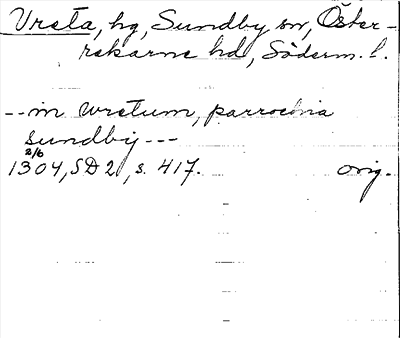 Vreta, hg, Sundby sn, Öster-
rekarne hd, Söderm. l.
-- in wretum, parrochia
sundby ---
2/6
1304, SD 2, s. 417. orig.